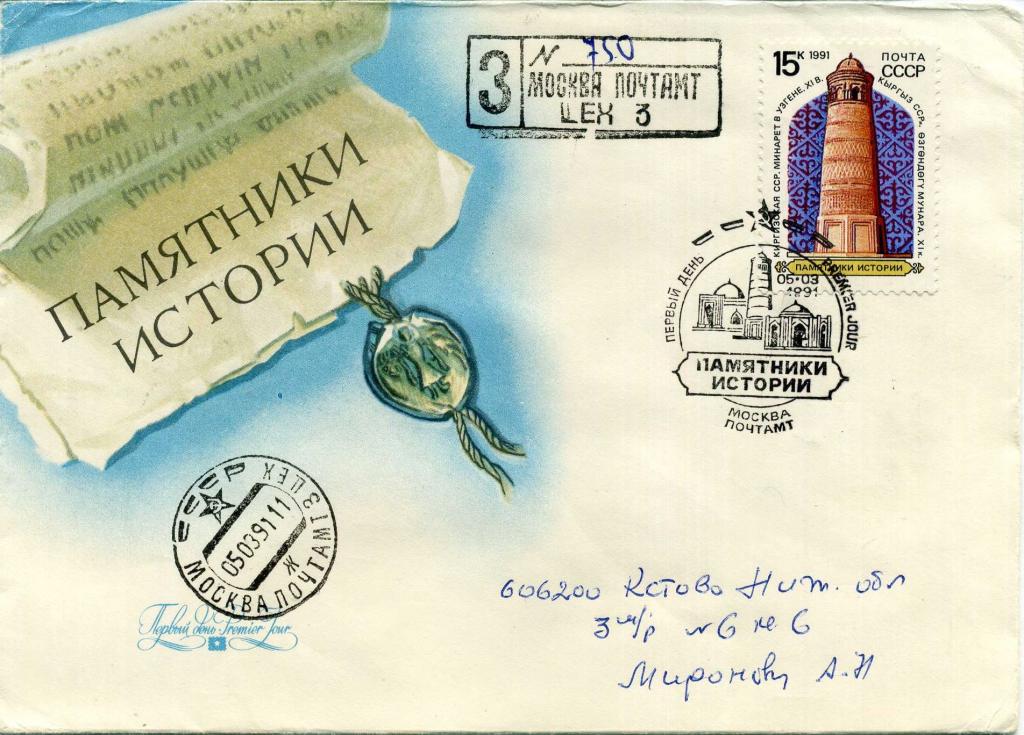 ПАМЯТНИКИ
ИСТОРИИ
З
N 750
МОСКВА ПОЧТАМТ
ЦЕХ 3
15К 1991
ПОЧТА
СССР
КИРГИЗСКАЯ ССР. МИНАРЕТ В УЗГЕНЕ. XI В.
КЫРГЫЗ ССР. ӨЗГӨНДӨГҮ МУНАРА. XI к.
ПАМЯТНИКИ ИСТОРИИ
ПЕРВЫЙ ДЕНЬ
PREMIER JOUR
05·03
1991
ПАМЯТНИКИ
ИСТОРИИ
МОСКВА
ПОЧТАМТ
СССР
05039111
Ж
МОСКВА ПОЧТАМТ 3 ЦЕХ
Первый день Premier Jour
606200 Кстово Ниж. обл
3 м/р 6
Миронову А.Н